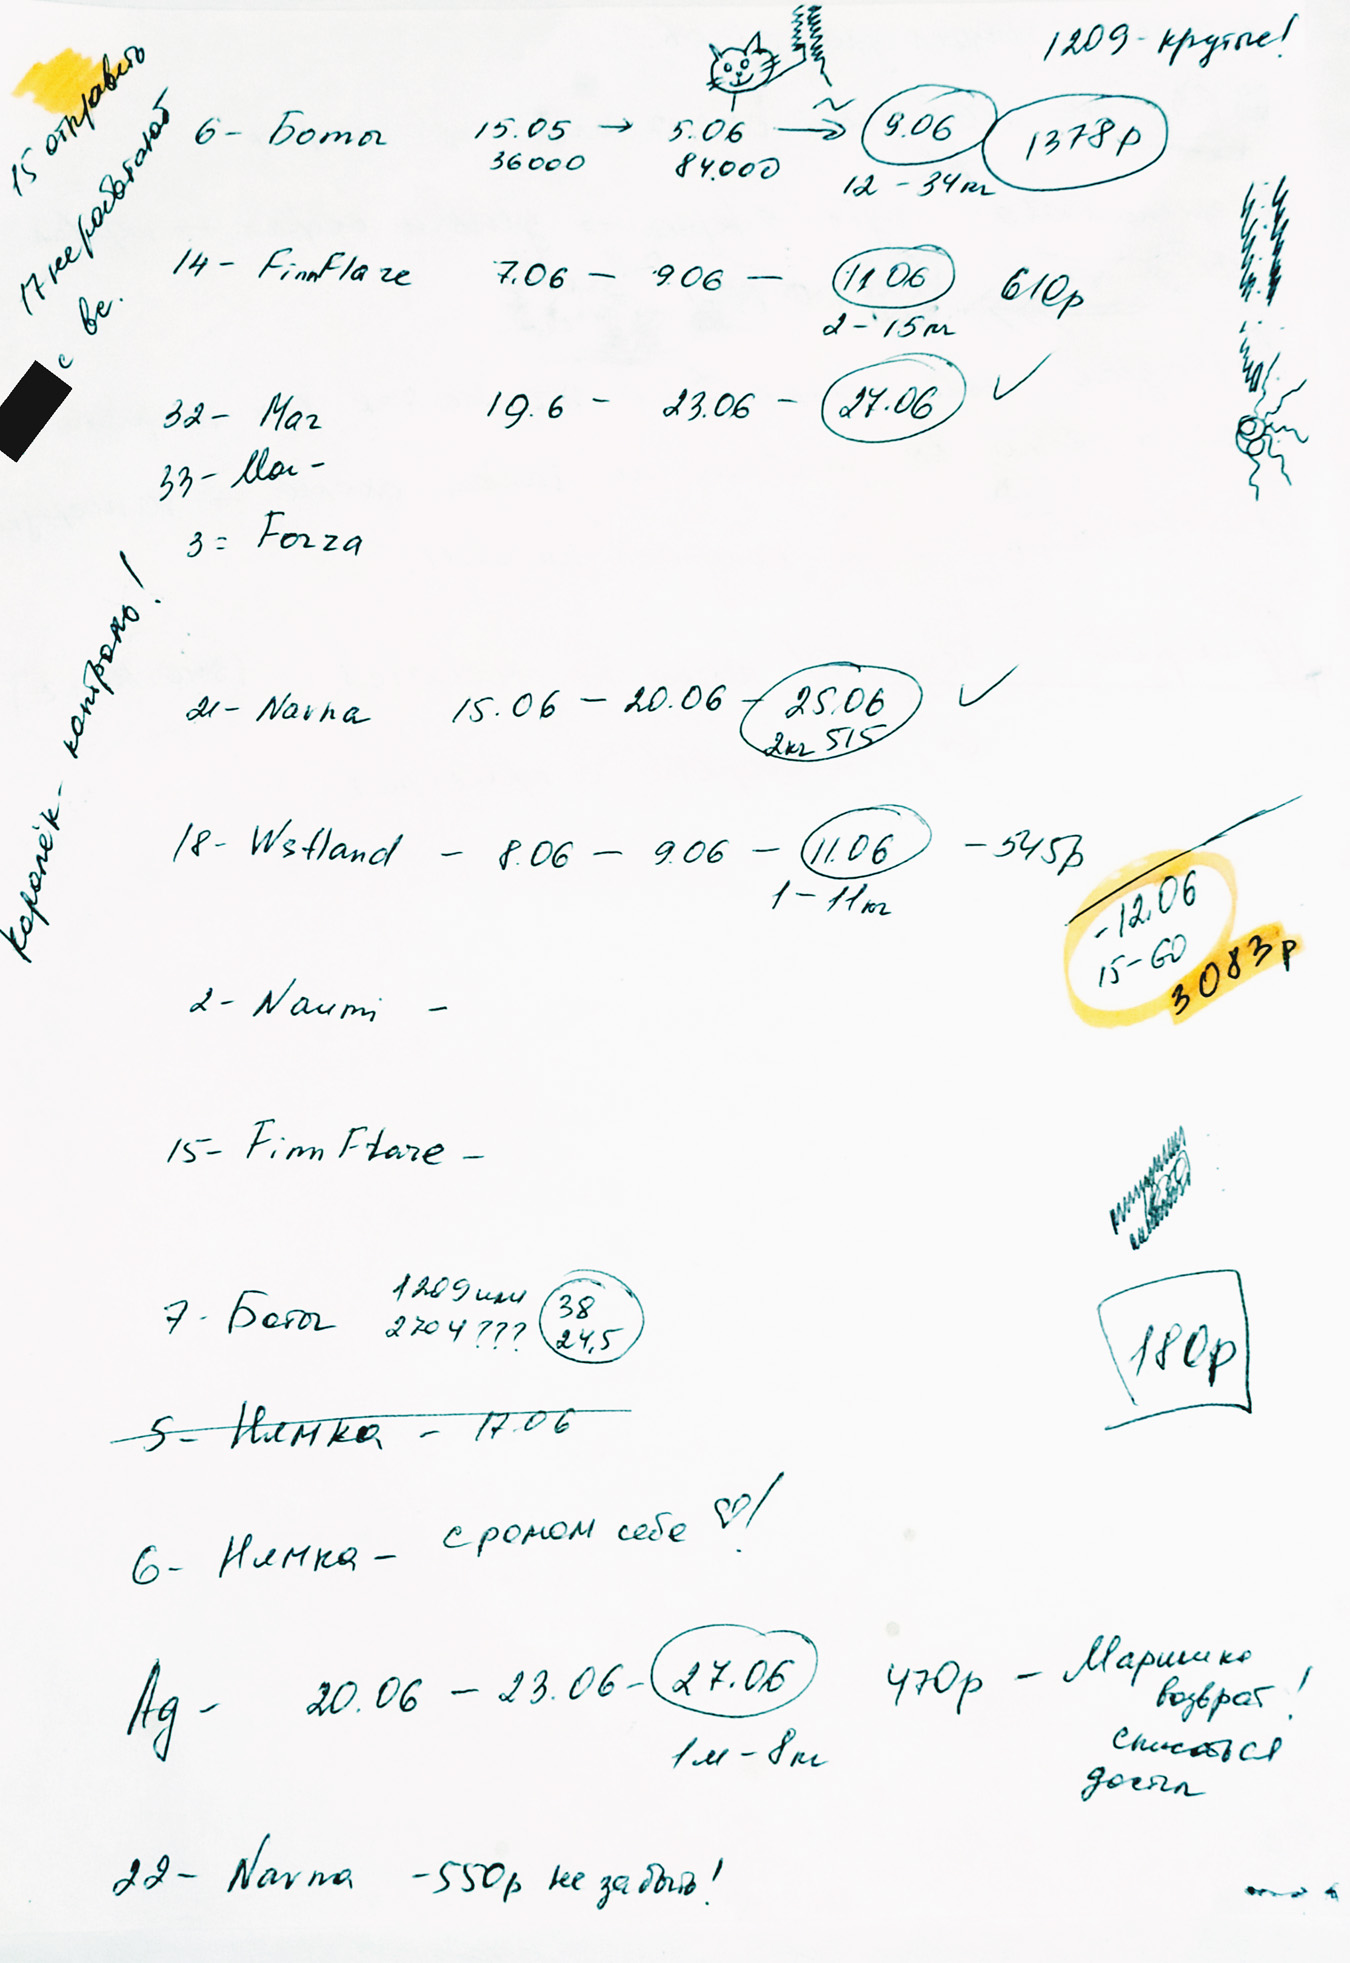 1209 - крутые!
15 отправить
17 не работают
с вс.
6 - Боты 15.05 → 5.06 → 9.06 1378р
36000 84.000 12 - 34кг
14 - FinnFlare 7.06 - 9.06 - 11.06 610р
2 - 15кг
32 - Mar 19.6 - 23.06 - 27.06 ✓
33 - Mar -
3 = Forza
королёк - контроль!
21 - Narna 15.06 - 20.06 - 25.06 ✓
2кг 515
18 - Wstland - 8.06 - 9.06 - 11.06 - 545р
1 - 11кг
- 12.06
15 - 60
3083р
2 - Naumi -
15 - FinnFlare -
7 - Боты 1209 или 38
2704??? 24,5
180р
5 - Нямка - 17.06
6 - Нямка - с ромом себе ♡!
Ag - 20.06 - 23.06 - 27.06 470р - Маришке
возврат!
1м - 8кг списаться
22 - Narna - 550р не забыть!